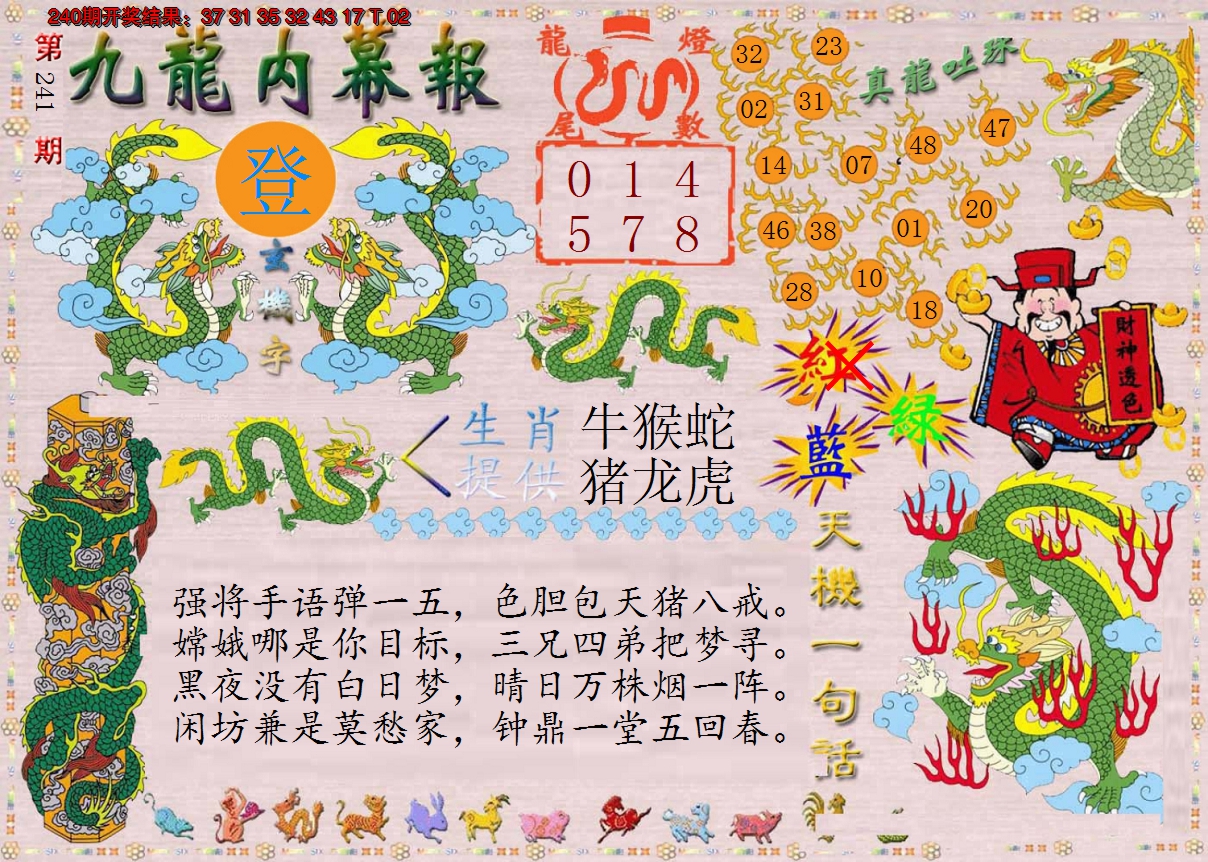 240期开奖结果：37 31 35 32 43 17 T 02
第241期
九龍内幕報
登
玄機字
龍燈
尾數
0 1 4
5 7 8
真龍吐珠
32 23
02 31
14 07 48 47
46 38 01 20
28 10 18
財神透色
紅
綠
藍
生肖 牛猴蛇
提供 猪龙虎
天機一句话
强将手语弹一五，色胆包天猪八戒。
嫦娥哪是你目标，三兄四弟把梦寻。
黑夜没有白日梦，晴日万株烟一阵。
闲坊兼是莫愁家，钟鼎一堂五回春。